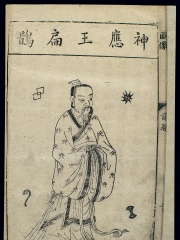 神應王扁鵲